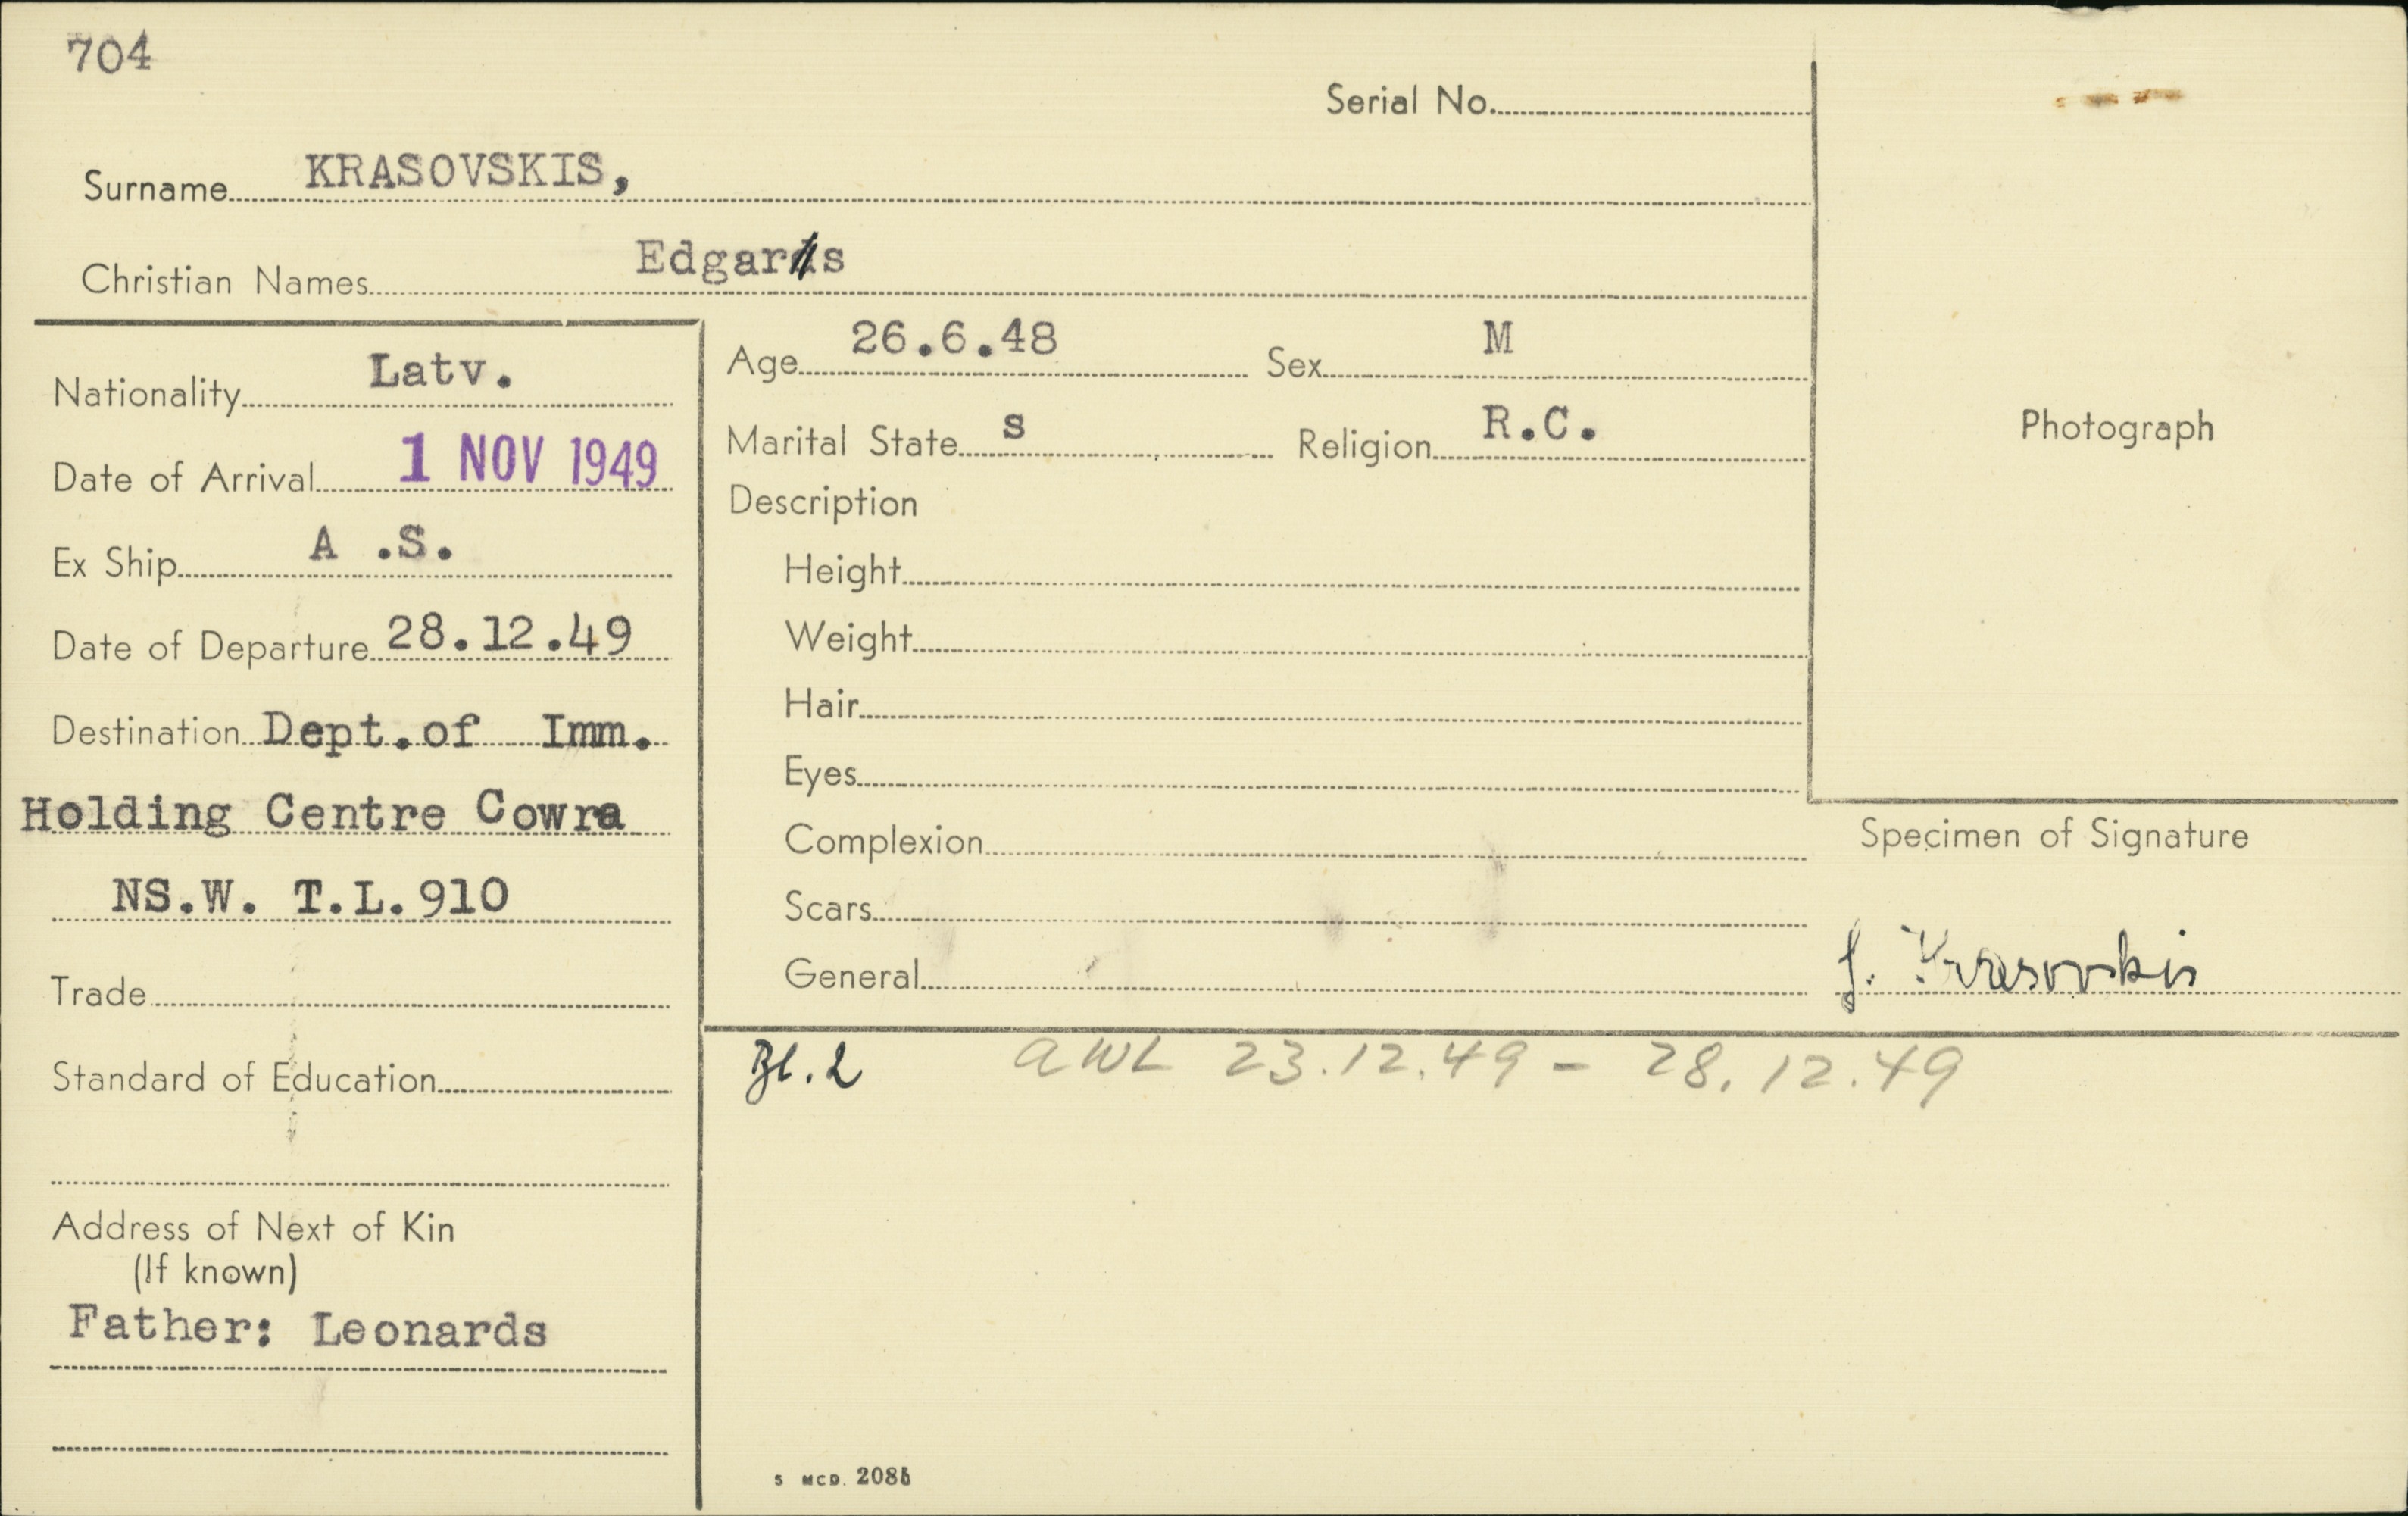 704
Serial No.
Surname KRASOVSKIS,
Christian Names Edgars
Nationality Latv.
Date of Arrival 1 NOV 1949
Ex Ship A .S.
Date of Departure 28.12.49
Destination Dept.of Imm.
Holding Centre Cowra
NS.W. T.L.910
Trade
Standard of Education
Address of Next of Kin
(If known)
Father: Leonards
Age 26.6.48 Sex M
Marital State s Religion R.C.
Description
Height
Weight
Hair
Eyes
Complexion
Scars
General
Photograph
Specimen of Signature
Krasovskis
Bl.2 AWL 23.12.49 - 28.12.49
S MCD. 2085